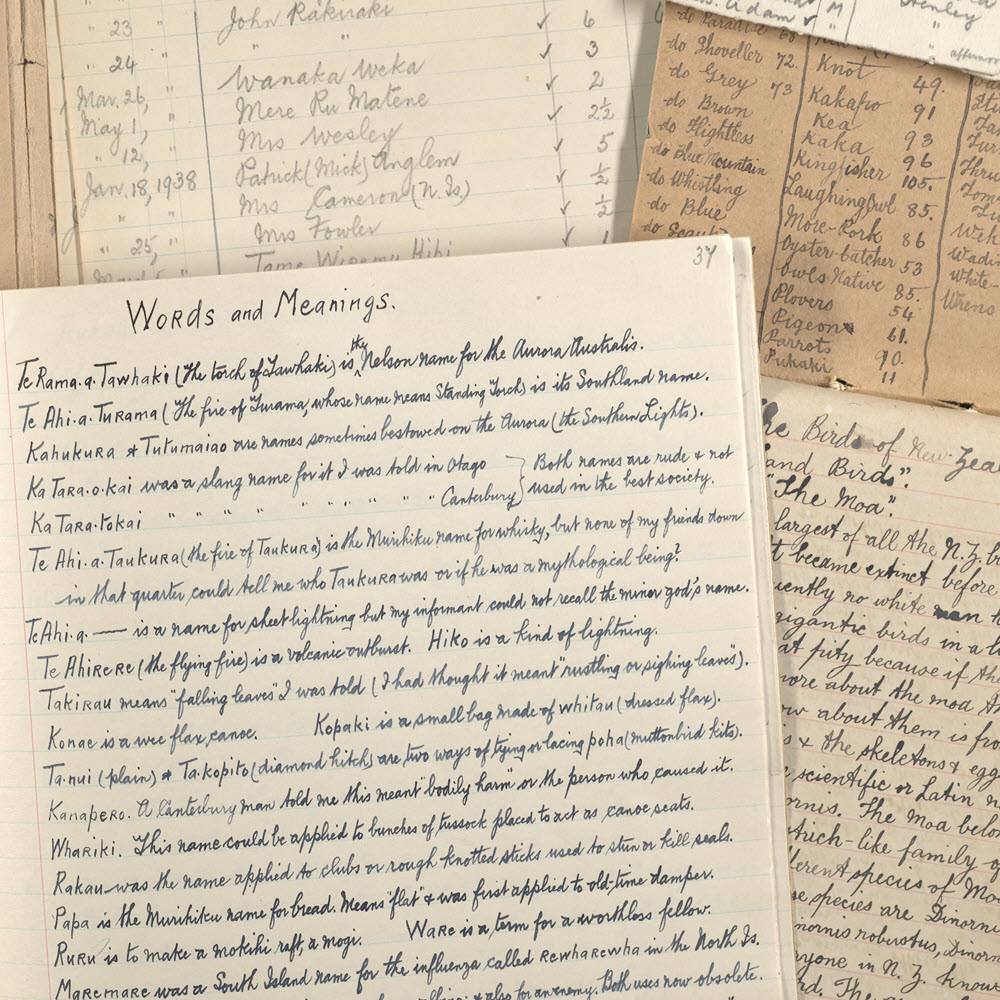 " 23 John Rakiraki ✓ 6
" 24 " ✓ 3
Mar. 26, " Wanaka Weka ✓ 2
May 1, " Mere Ru Matene ✓ 2½
" 12, " Mrs Wesley ✓ 5
Jan. 18, 1938 Patrick (Mick) Anglem ✓ ½
" " Mrs Cameron (N. Is.) ✓ ½
" 25, " Mrs Fowler ✓ 1
Tame Wiremu Hihi
Adam ✓ M
Henley
afternoon
do Paradise 68
do Shoveller 72.
do Grey 73
do Brown
do Flightless
do Blue Mountain
do Whistling
do Blue
do Scaup
Knot 49.
Kakapo 91
Kea
Kaka 93
Kingfisher 96
Laughing Owl 105.
More-Pork 85.
Oyster-catcher 86
Owls Native 53
Plovers 85.
Pigeons 54
Parrots 61.
Pukaki 90.
11
Wrens
37
Words and Meanings.
Te Rama.a.Tawhaki (The torch of Tawhaki) is the Nelson name for the Aurora Australis.
Te Ahi.a.Turama (The fire of Turama, whose name means Standing Torch) is its Southland name.
Kahukura & Tutumaiao are names sometimes bestowed on the Aurora (the Southern Lights).
Ka Tara.o.kai was a slang name for it I was told in Otago } Both names are rude & not
Ka Tara.tokai " " " " " " " " " " Canterbury } used in the best society.
Te Ahi.a.Taukura (the fire of Taukura) is the Murihiku name for whisky, but none of my friends down
in that quarter could tell me who Taukura was or if he was a mythological being?
Te Ahi.a. — is a name for sheet lightning but my informant could not recall the minor god's name.
Te Ahirere (the flying fire) is a volcanic outburst. Hiko is a kind of lightning.
Takirau means "falling leaves" I was told (I had thought it meant "rustling or sighing leaves").
Konae is a wee flax canoe. Kopaki is a small bag made of whitau (dressed flax).
Ta.nui (plain) & Ta.kopito (diamond hitch) are two ways of tying or lacing poha (muttonbird kits).
Kanapero. A Canterbury man told me this meant "bodily harm" or the person who caused it.
Whariki. This name could be applied to bunches of tussock placed to act as canoe seats.
Rakau was the name applied to clubs or rough knotted sticks used to stun or kill seals.
Papa is the Murihiku name for bread. Means "flat" & was first applied to old-time damper.
Ruru is to make a mokihi raft, a mogi. Ware is a term for a worthless fellow.
Maremare was a South Island name for the influenza called Rewharewha in the North Is.
& also for an enemy. Both uses now obsolete.
The Birds of New Zeal
and Birds".
"The Moa".
largest of all the N.Z. b
t became extinct before
uently no white man
gigantic birds in a l
at pity because if the
ore about the moa th
ow about them is fro
s & the skeletons & egg
scientific or Latin n
ornis. The moa belo
trich-like family o
ferent species of Mo
se species are Dinorn
inornis robustus, Dinorn
ryone in N.Z. know
rd. The